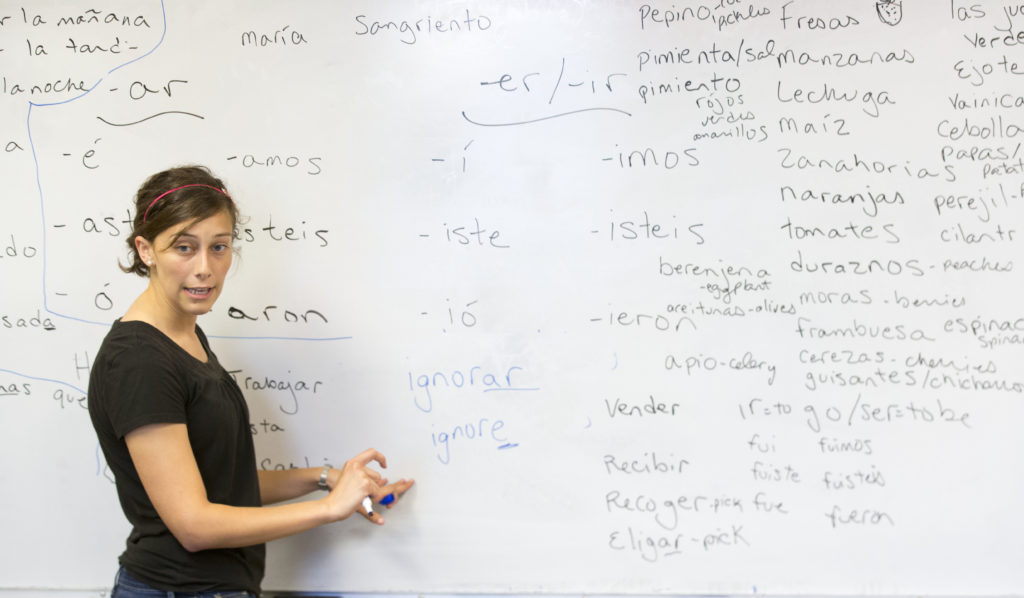 r la mañana
la tard-
la noche
-ar
-é
-amos
-ast
steis
-ó
-aron
a
do
sada
mas que
H
Trabajar
sta
maría
Sangriento
-er/-ir
-í
-imos
-iste
-isteis
-ió
-ieron
ignorar
ignore
Pepino
pimienta/sal
pimiento
rójos
verdes
amarillos
berenjena
-eggplant
areitunas-olives
apio-celery
Vender
Recibir
Recoger-pick
Eligar-pick
ir=to go/ser=to be
fui fuimos
fuiste fústeis
fue fueron
Fresas
manzanas
Lechuga
maíz
Zanahorias
naranjas
tomates
duraznos-peaches
moras-berries
frambuesa
cerezas-cherries
guisantes/chicharro
las ju
verde
Ejote
Vainica
Cebolla
papas/
patat
perejil-
cilantr
espinac
spinac